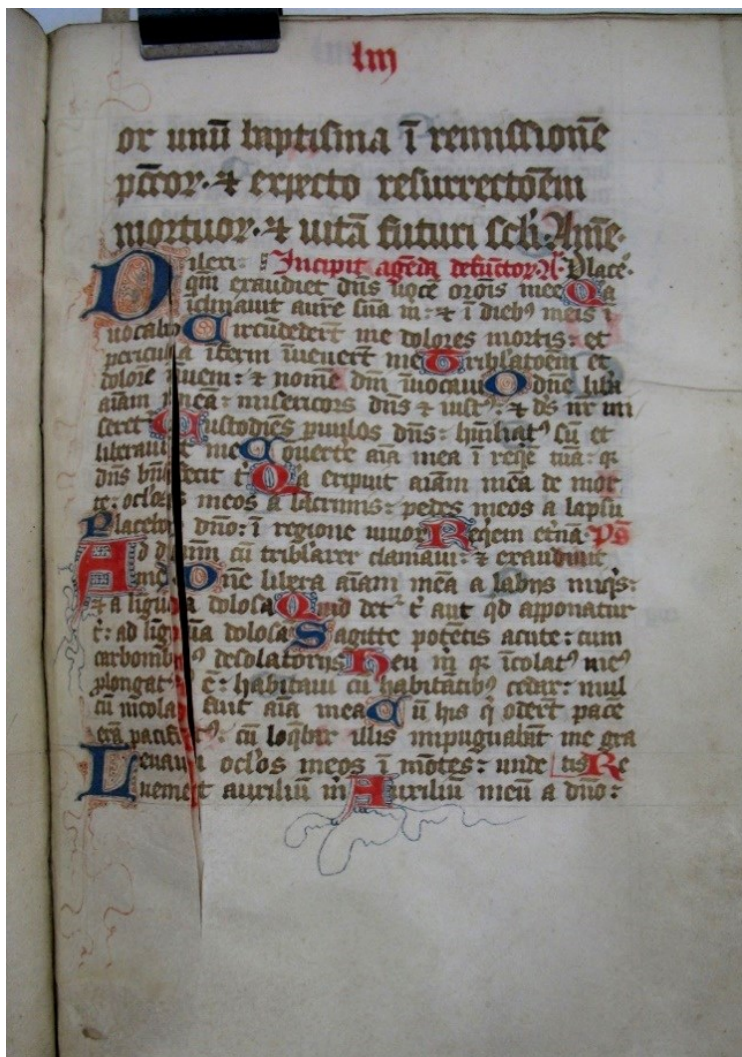 lm
or unū baptisma ī remissionē
pctōr · ⁊ expecto resurrectōem
mortuor · ⁊ uitā futuri scli · Amē ·
Dilexi : Incipit agēda defūctor · A Placē ·
qm exaudiet dns uocē orōis mee Qa
īclinauit aurē suā m : ⁊ ī diebꝰ meis ī
uocabo Circūdederūt me dolores mortis : et
pericula īferni īuenert me Tribłatoem et
dolorē īueni : ⁊ nomē dni īuocaui O dne liba
aīam mea : misericors dns ⁊ iustꝰ : ⁊ ds nr mi
seret Custodiēs puulos dns : hūiliatꝰ sū et
liberauit me Couerte aīa mea ī reqē tuā : q
dns bn̄fecit t Qa eripuit aīam meā de mor
te : oclos meos a lacrimis : pedes meos a lapsu
Placebo dno : ī regione uiuor Reqiem et̄nā · Ps
Ad dnm cū triblarer clamaui : ⁊ exaudiuit
me · Dne libera aīam meā a labijs iniqs :
⁊ a ligua dolosa Quid det t aut qd apponatur
t : ad ligua dolosa Sagitte potētis acute : cum
carbonibꝰ desolatorijs Heu m q īcolatꝰ meꝰ
plongatꝰ ē : habitaui cū habitātibꝰ cedar : mul
tū īcola fuit aīa mea Cū his q oderūt pacē
erā pacificꝰ : cū loqbar illis īpugnabāt me gra
Leuaui oclos meos ī mōtes : unde tis Re
ueniet auxiliū m Auxiliū meū a dno :